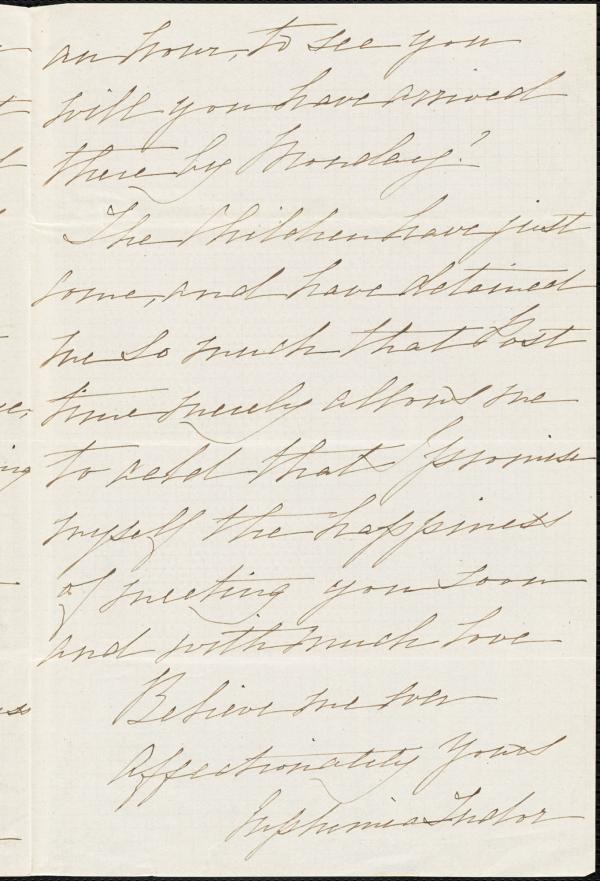 an hour, to see you
will you have arrived
there by Monday?
The Children have just
come, and have detained
me so much that Post
time merely allows me
to add that I promise
myself the happiness
of meeting you soon
and with much love
Believe me ever
Affectionately Yours
Euphemia Tudor